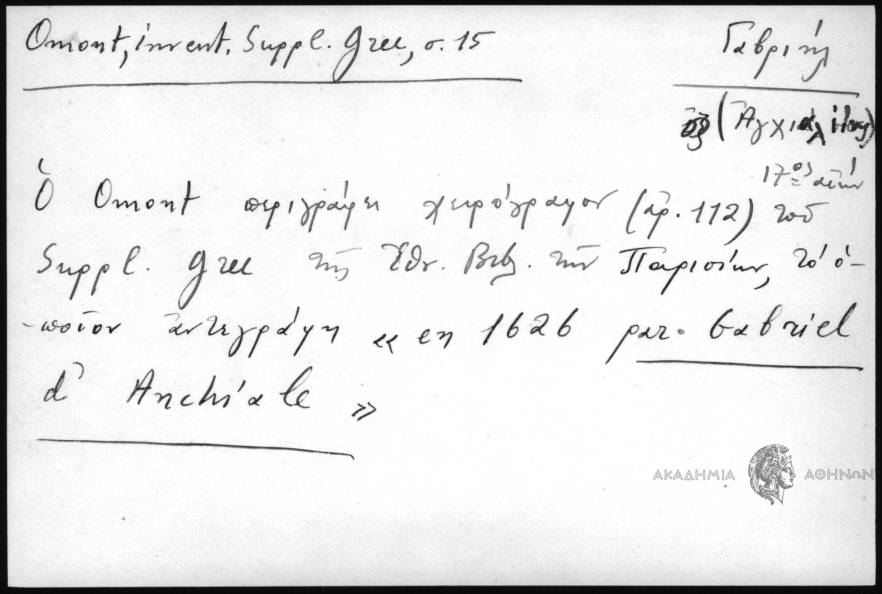 Omont, invent. Suppl. Grec, σ. 15
Γαβριήλ
(Ἀγχιαλίτης)
17ος αἰών
Ὁ Omont περιγράφει χειρόγραφον (ἀρ. 112) τοῦ
Suppl. Grec τῆς Ἐθν. Βιβ. τῶν Παρισίων, τὸ ὁ-
-ποῖον ἀντεγράφη « en 1626 par Gabriel
d' Anchiale »
ΑΚΑΔΗΜΙΑ ΑΘΗΝΩΝ